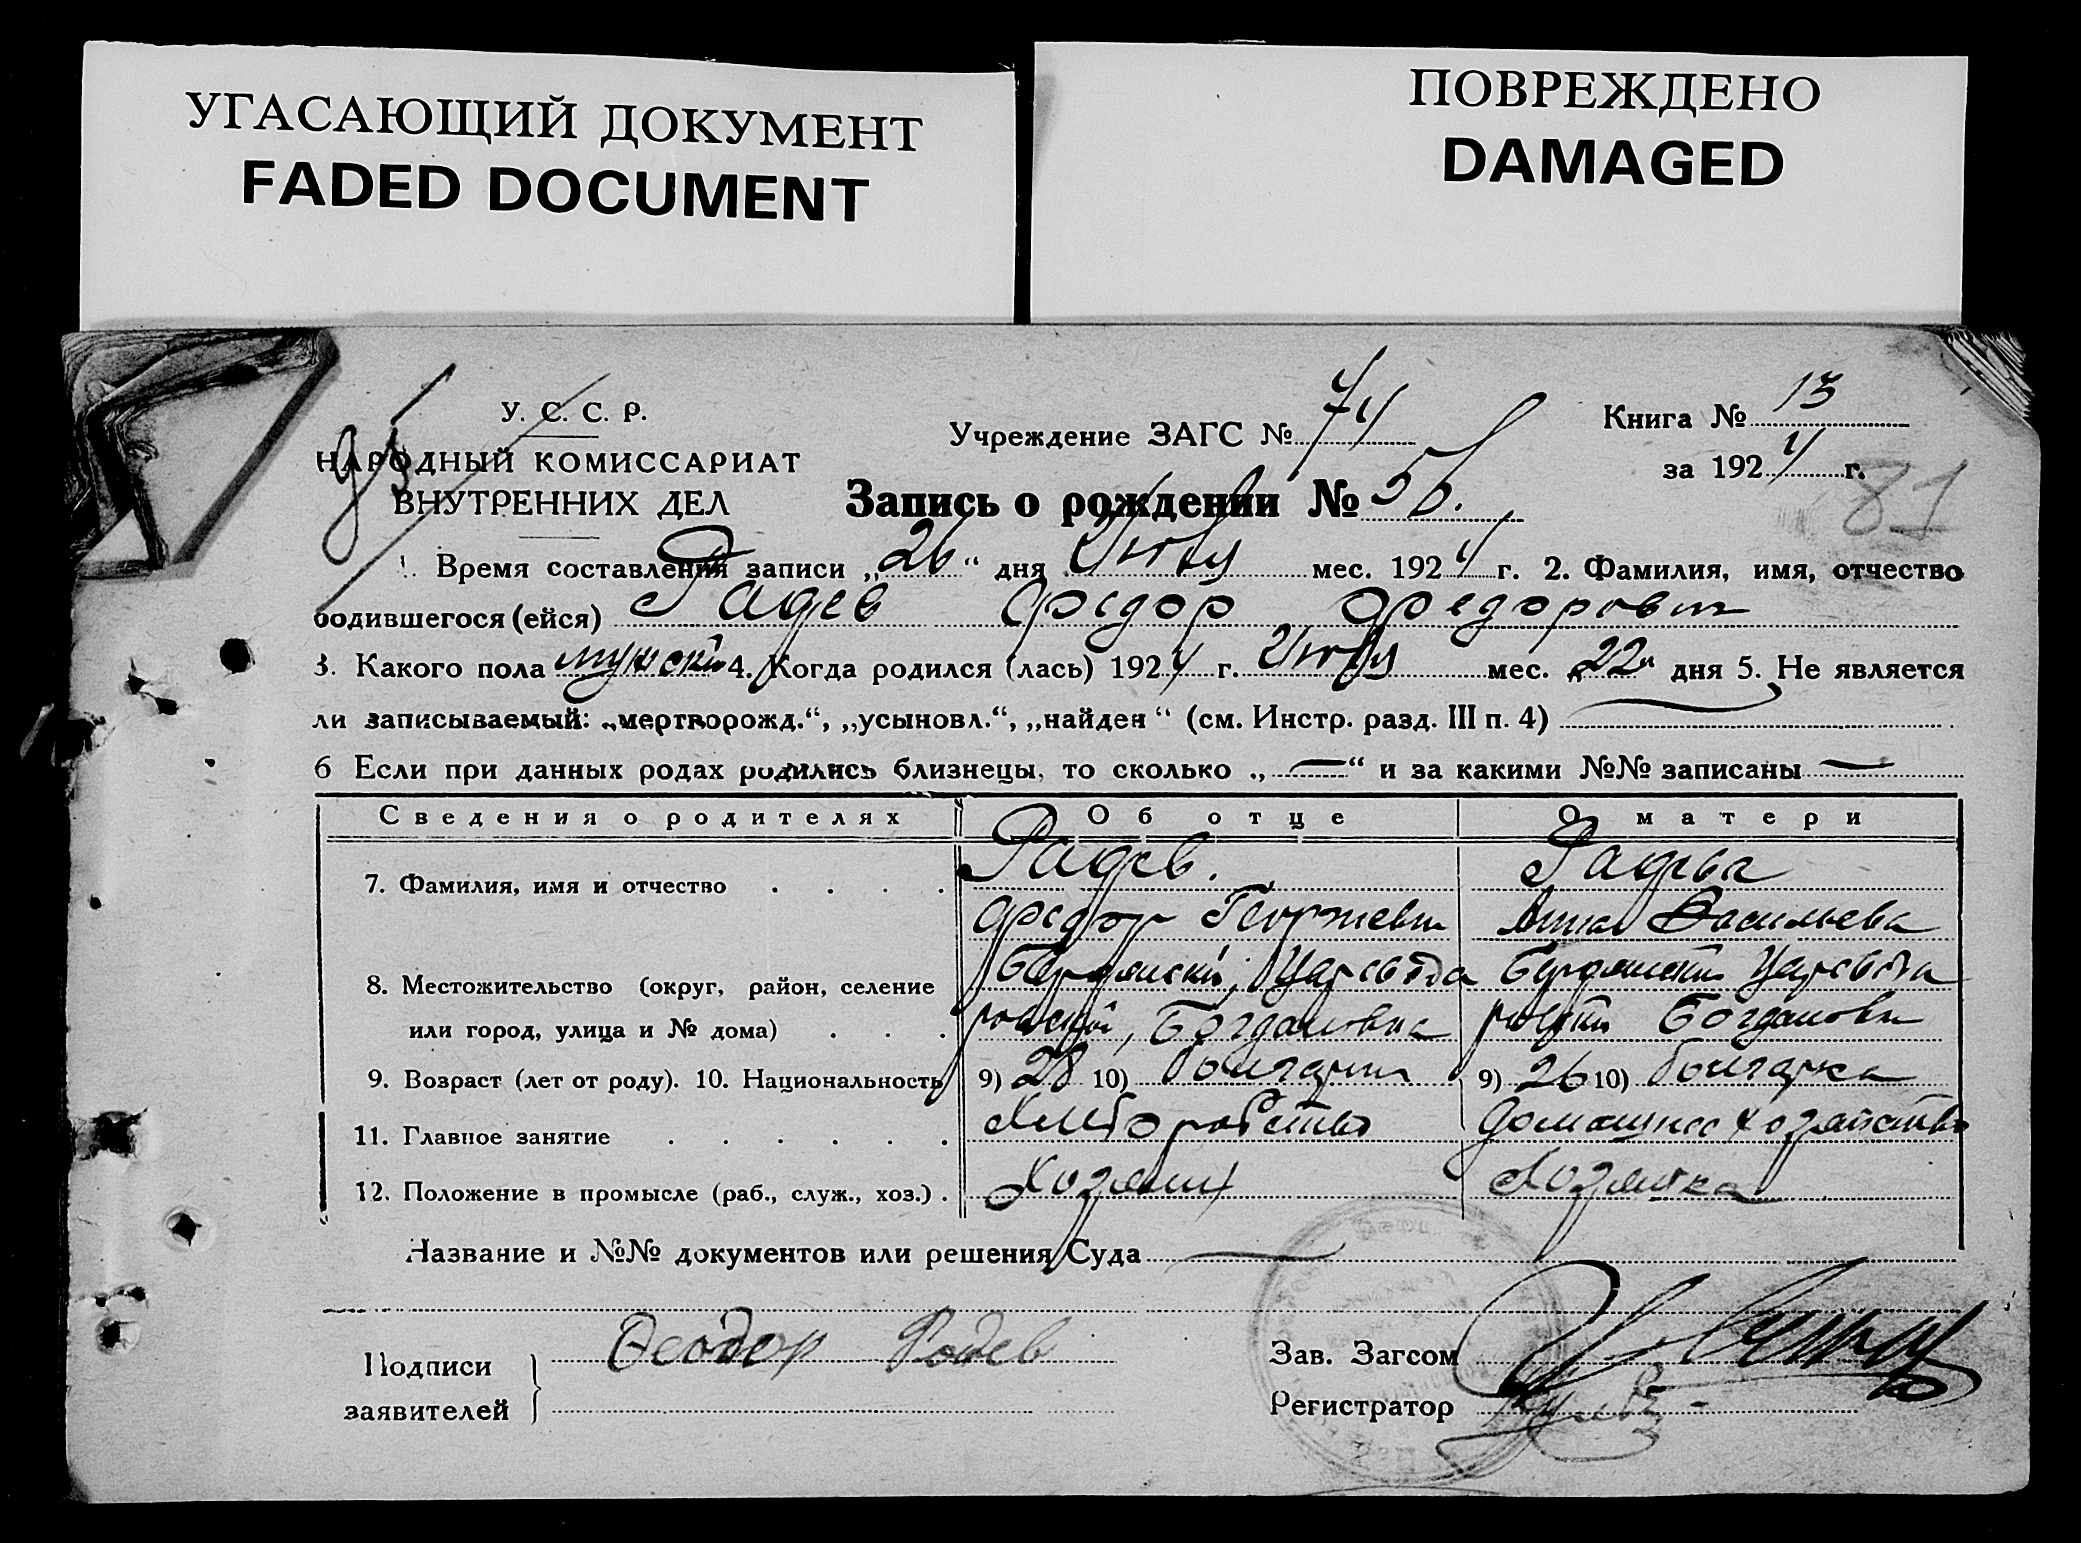 УГАСАЮЩИЙ ДОКУМЕНТ
FADED DOCUMENT
ПОВРЕЖДЕНО
DAMAGED
У. С. С. Р.
НАРОДНЫЙ КОМИССАРИАТ
ВНУТРЕННИХ ДЕЛ
95
Учреждение ЗАГС № 74
Книга № 13
за 1924 г.
81
Запись о рождении № 56.
1. Время составления записи „26“ дня мес. 1924 г. 2. Фамилия, имя, отчество
родившегося (ейся) Радев Федор Федорович
3. Какого пола мужской 4. Когда родился (лась) 1924 г. мес. 22 дня 5. Не является
ли записываемый: „мертворожд.“, „усыновл.“, „найден“ (см. Инстр. разд. III п. 4) —
6 Если при данных родах родились близнецы, то сколько „—“ и за какими №№ записаны —
Сведения о родителях Об отце О матери
7. Фамилия, имя и отчество Радев. Радева
Федор Георгиевич Анна Васильева
8. Местожительство (округ, район, селение Бердянский, Царево Бердянский Царево
или город, улица и № дома) Богдановка Богдановка
9. Возраст (лет от роду). 10. Национальность 9) 28 10) болгарин 9) 26 10) болгарка
11. Главное занятие Хлеборобство домашнее хозяйство
12. Положение в промысле (раб., служ., хоз.) Хозяин Хозяйка
Название и №№ документов или решения Суда —
Подписи
заявителей
Феодор Радев
Зав. Загсом
Регистратор